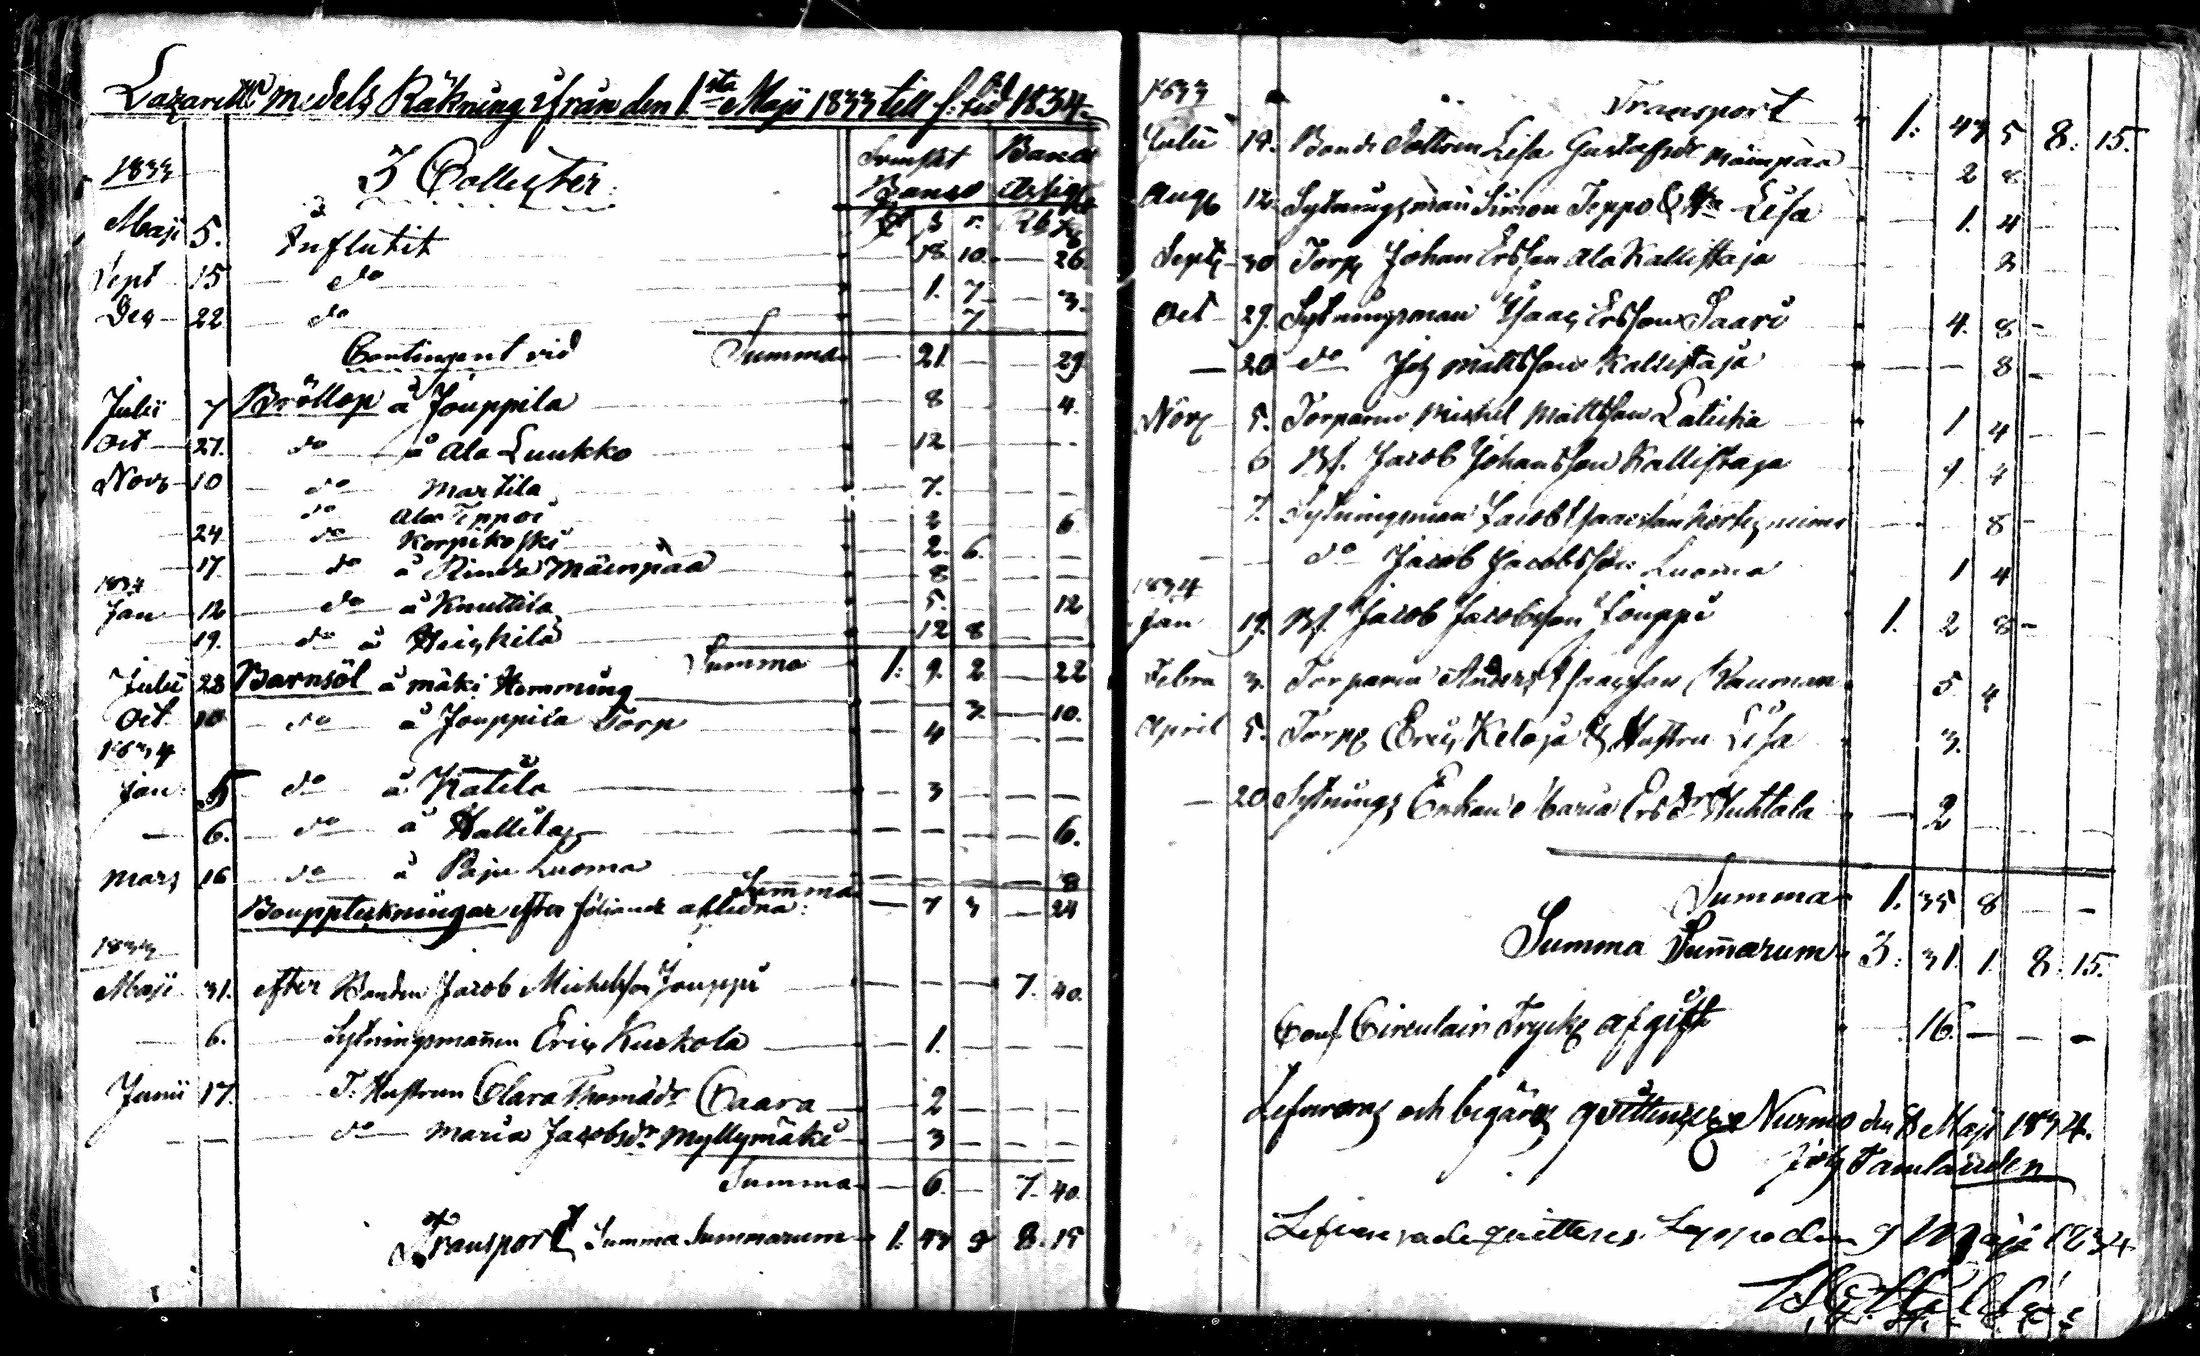 Lazaretts medels Räkning ifrån den 1sta Maji 1833 till s. tid 1834.
1833 3 Collecter. Svenskt Banco Banco Assign
Rd s r. Rb k
Maji 5. Influtit 18 10 26.
Sept 15 do 1. 7 3.
Dec 22 do 7
Summa 21 29
Contingent vid
Julii 7 Bröllop å Jouppila 8 4.
Oct 27. do å Ala Luukko 12
Nov 10 do Martila 7.
do Ala Teppoi 2 6
24 do Korpikoski 2. 6.
17. do å Rinda Mäenpää 8
1834
Jan 12 do å Knuttila 5. 12
19. do å Heickilä 12 8
Summa 1: 9. 2 22
Julii 28 Barnsöl å mäki Hemming 7. 10.
Oct. 10 do å Jouppila Torp 4
1834
Jan: 5 do å Katila 3
6. do å Hallila 6.
Mars 16 do å Paju Luoma 8
Summa 7 3 24
Bouppteckningar efter följande aflidna:
1833
Maji 31. efter Bonden Jacob Michelsson Jouppi 7. 40.
6. Sytningsmannen Eric Kuckola 1.
Junii 17. T. Hustrun Clara Thomædr Caara 2
do Maria Jacobsdr Myllymäki 3
Summa 6. 7. 40.
Transport Summa Summarum 1. 43 5 8. 15
1833 Transport 1: 43 5 8. 15.
Julii 14. Bonde Dottren Lisa Gustafsdr Mäenpää 2 8
Aug 12. Sytningsman Simon Teppo & Hu Lisa 1. 4
Sept 30 Torp Johan Ersson Ala Kallistaja 2
Oct 29. Sytningsman Isaac Ersson Saari 4. 8
20 do Joh Mattsson Kallistaja 8
Nov 5. Torparen Michel Mattsson Laticka 1 4
6 Bd. Jacob Johansson Kallistaja 1 4
7. Sytningsman Jacob Isaacsson 8
do Jacob Jacobsson Luoma 1 4
1834
Jan 19. Bd. Jacob Jacobsson Jouppi 1. 2 8
Febru 3. Torparen Anders Isaacsson Kauonen 5 4
April 5. Torp Eric Ketoja & Hustru Lisa 3.
20 Sytnings Enkan Maria Ersdr Huhtala 2
Summa 1. 35 8
Summa Summarum 3: 31. 1. 8. 15.
Circulair Tryck afgift 16.
och begäres Nurmo den 8 Maji 1834.
Joh Tamlander
quitteres. Lappo den 9 Maji 1834